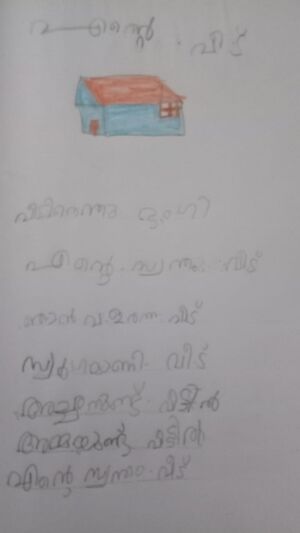 എന്റെ വീട്
വീടിനെന്തു ഭംഗി
എന്റെ സ്വന്തം വീട്
ഞാൻ വളരുന്ന വീട്
സ്വർഗമാണി വീട്
അച്ഛനുണ്ട് വീട്ടിൽ
അമ്മയുണ്ട് വീട്ടിൽ
എന്റെ സ്വന്തം വീട്